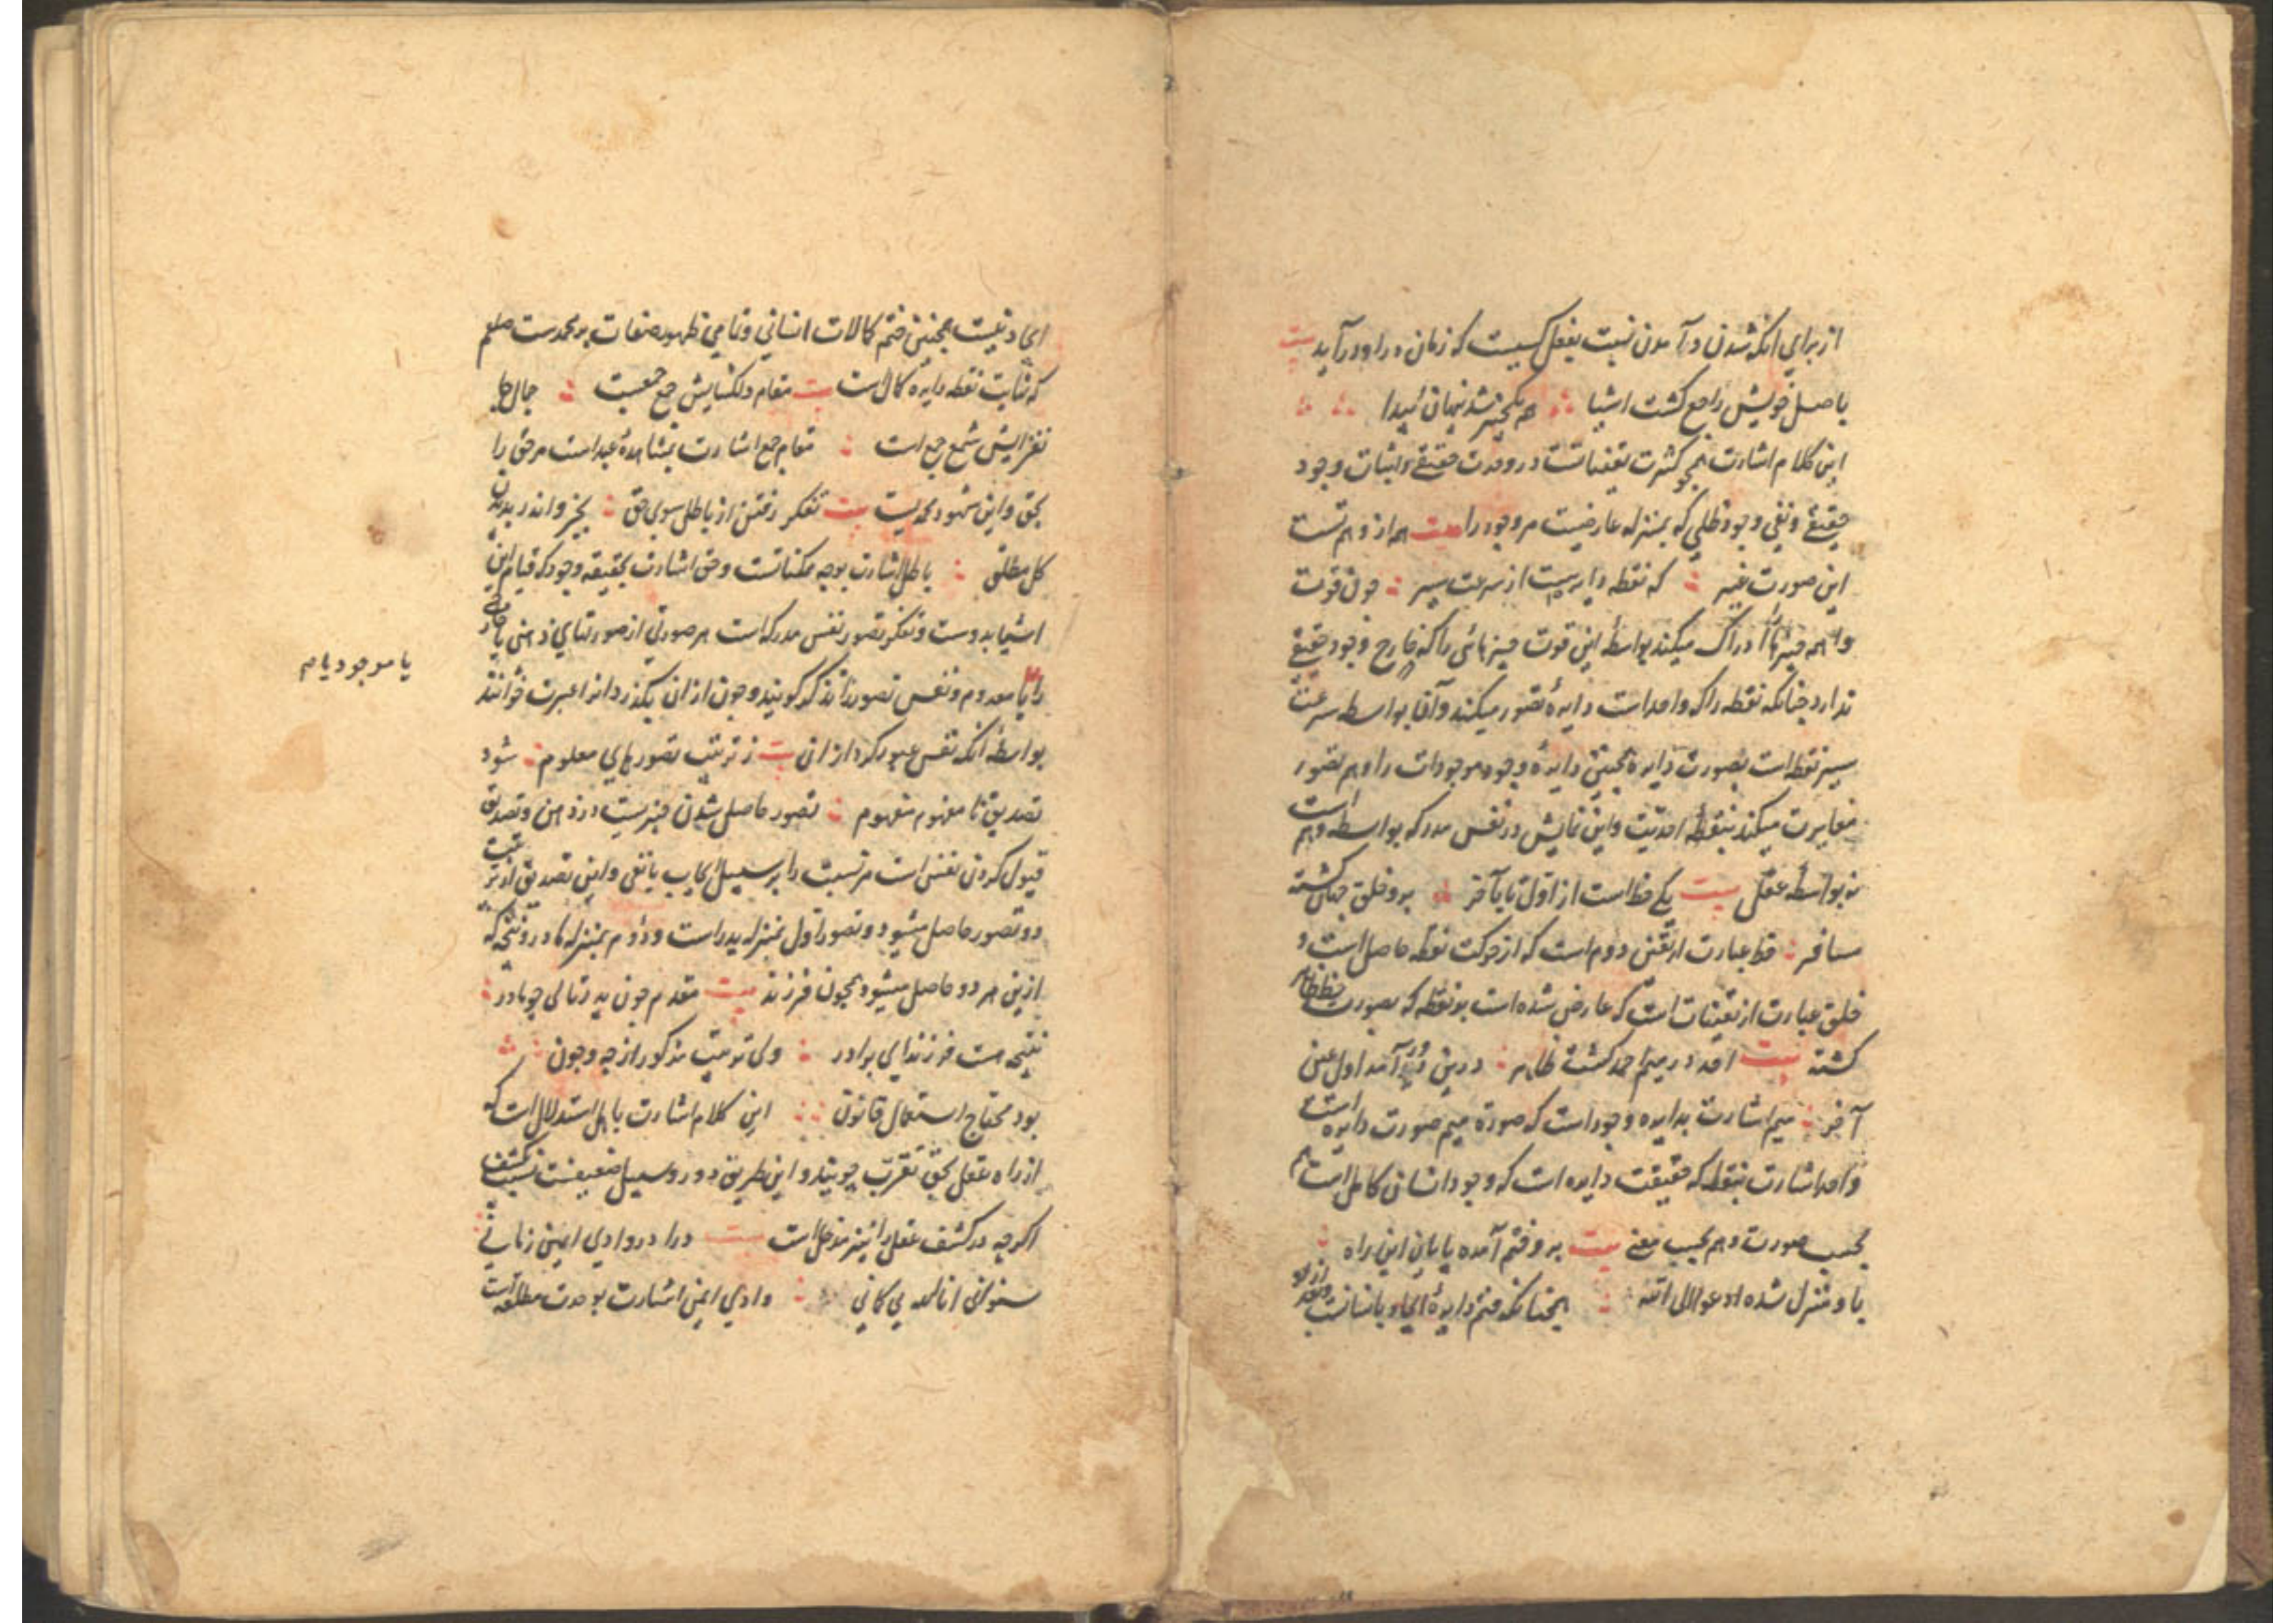 از برای انکه شدن و آمدن نسبت بفعل کسیست که زمان در او در آید بیت
باصل خویش راجع کشت اشیا همه یکچیز شد پنهان پیدا
این کلام اشارت بمحو کثرت تعیناتست در وحدت حقیقی و اثبات وجود
حقیقی و نفی وجود ظلی که بمنزله عارضیست مر وجود را بیت همه از وهم تست
این صورت غیر که نقطه دایریست از سرعت سیر چون قوت
واهمه چیزها را ادراک میکند بواسطهٔ این قوت چیزهائی را که خارج وجود حقیقی
ندارد چنانکه نقطه را که واحد است دایرهٔ تصور میکند و آنها بواسطه سرعت
سیر نقطه است بصورت دایره همچنین دایرهٔ وجود موجودات را وهم تصور
مغایرت میکند بنقطهٔ احدیت و این نمایش در نفس مدرکه بواسطه وهم است
نه بواسطهٔ عقل بیت یکی خط است از اول تا بآخر برو خلق جهان کشته
مسافر خط عبارت از تعین دوم است که از حرکت نقطه حاصل است و
خلق عبارت از تعینات است که عارض شده است بر نقطه که بصورت خط ظاهر
کشته بیت احد در میم احمد کشته ظاهر درین دور آمد اول عین
آخر میم اشارت بدایره وجود است که صورة میم صورت دایره است
و احد اشارت بنقطه که حقیقت دایره است که وجود انسان کامل است هم
بحسب صورت و هم بحسب معنی بیت برو ختم آمده پایان این راه
باو منزل شده ادعوا الی الله همچنانکه ختم دایرهٔ ایجاد بانسانست
ایجاد نیست همچنین ختم کمالات انسانی و تمامی ظهور صفات بر محمدست صلعم
که نهایت نقطه دایره کمال است بیت مقام دلکشایش جمع جمعیت جمال جان
فزایش شمع جمع است مقام جمع اشارت بمشاهدهٔ عبد است مر حق را
بحق و این شهود محمدیست بیت تفکر رفتن از باطل سوی حق بجزو اندر بدیدن
کل مطلق باطل اشارت بوجه ممکناتست و حق اشارت بحقیقه وجود که قیام این
اشیا بدوست و تفکر تصور نفس مدرکه است هر صورتی از صورتهای ذهنی یا خارجی
را یا معدوم و نفس تصور را تذکر کویند و چون از ان بکذرد انرا عبرت خوانند
یا موجود یا م
بواسطهٔ انکه نفس عبور کرد از ان بیت ز ترتیب تصورهای معلوم شود
تصدیق نا مفهوم مفهوم تصور حاصل شدن چیزیست در ذهن و تصدیق
قبول کردن نفس است مر نسبت را بر سبیل ایجاب یا نفی و این تصدیق از ترتیب
دو تصور حاصل میشود و تصور اول بمنزله پدر است و دوم بمنزله مادر و نتیجه که
ازین هر دو حاصل میشود همچون فرزند بیت مقدم چون پدر تالی چو مادر
نتیجه هست فرزند ای برادر ولی ترتیب مذکور از چه و چون
بود محتاج استعمال قانون این کلام اشارت باهل استدلال است که
از راه عقل بحق تقرب جویند و این طریق دور و سبیل ضعیفست نسبت بکشف
اکرچه در کشف عقل را نیز مدخل است بیت درا در وادی ایمن زمانی
شنو انی انا الله بی کمانی وادی ایمن اشارت بوحدت مطلقه است